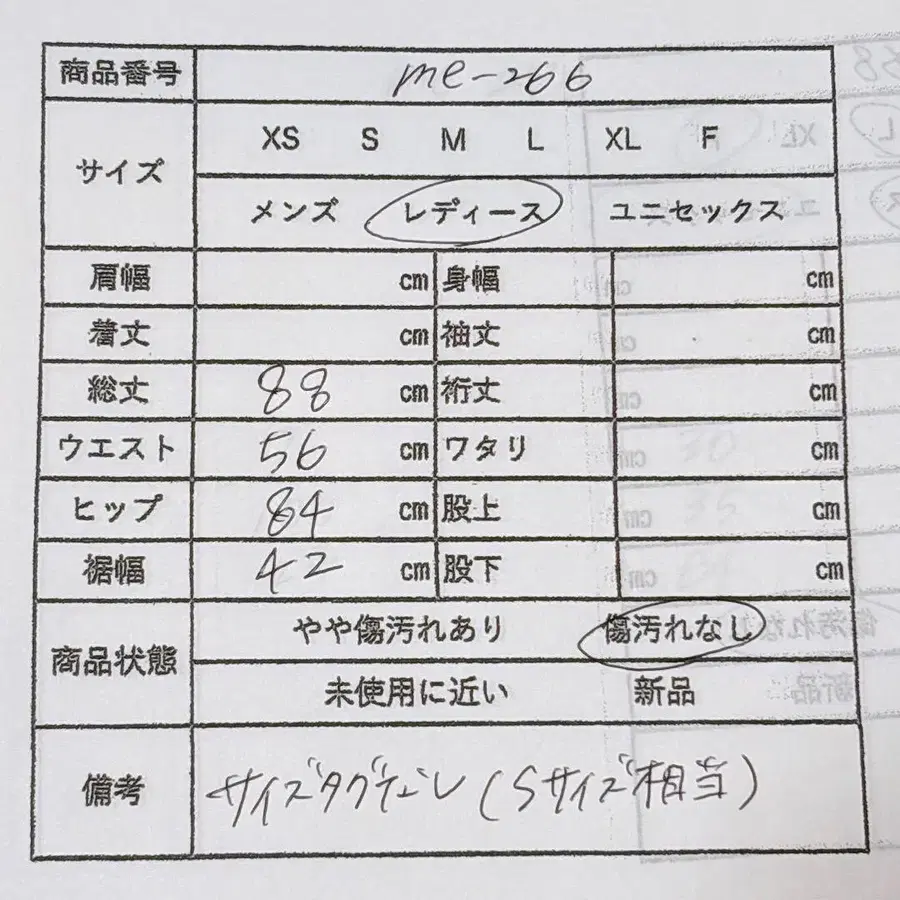 商品番号 me-266
サイズ XS S M L XL F
メンズ レディース ユニセックス
肩幅 cm 身幅 cm
着丈 cm 袖丈 cm
総丈 88 cm 裄丈 cm
ウエスト 56 cm ワタリ cm
ヒップ 84 cm 股上 cm
裾幅 42 cm 股下 cm
商品状態 やや傷汚れあり 傷汚れなし
未使用に近い 新品
備考 サイズタグなし(Sサイズ相当)